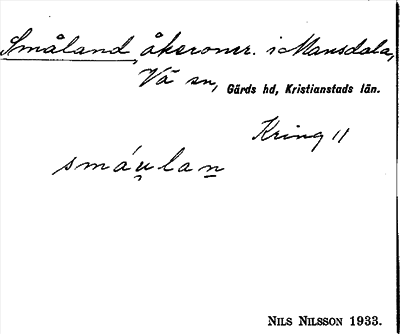 Småland, åkeromr. i Mansdala,
Vä sn, Gärds hd, Kristianstads län.
Kring 11
smáu̯lan
NILS NILSSON 1933.